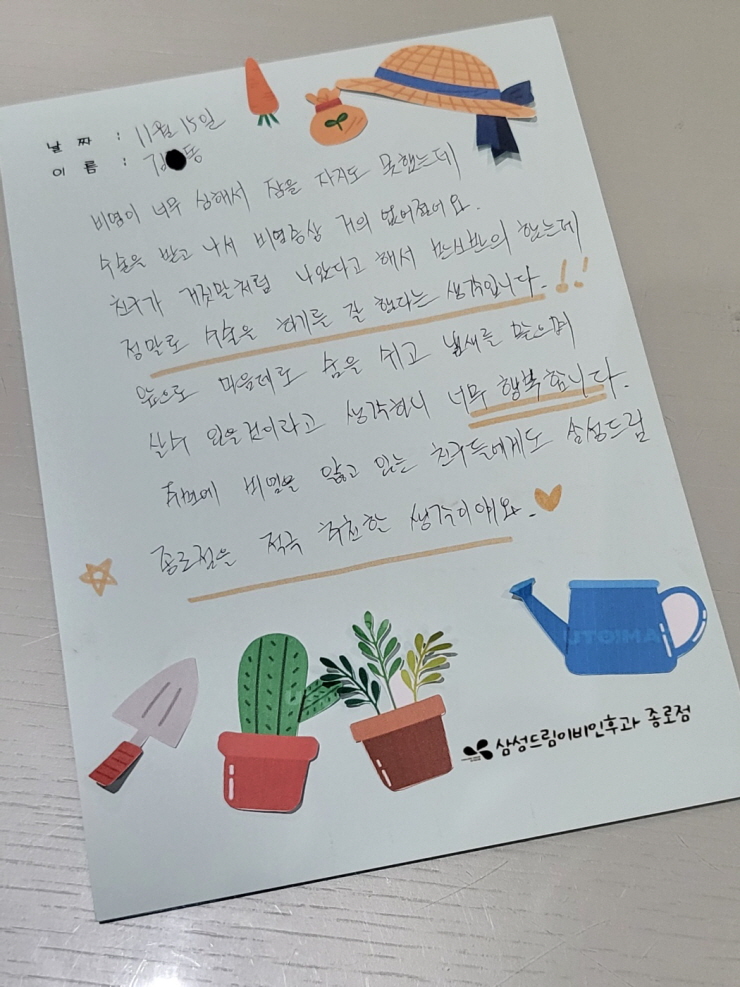 날 짜 : 11월 15일
이 름 : 김 동
비염이 너무 심해서 잠을 자지도 못했는데
수술을 받고 나서 비염증상 거의 없어졌어요.
친구가 거짓말처럼 나았다고 해서 반신반의 했는데
정말로 수술을 하기를 잘 했다는 생각입니다. !!
앞으로 마음데로 숨을 쉬고 냄새를 맡으며
살수 있을것이라고 생각하니 너무 행복합니다.
주변에 비염을 앓고 있는 친구들에게도 삼성드림
종로점을 적극 추천할 생각이에요.
UTOIMA
삼성드림이비인후과 종로점